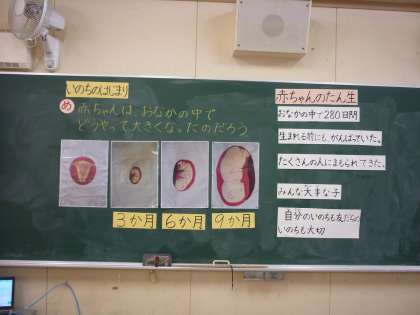 いのちのはじまり
め 赤ちゃんは、おなかの中で
どうやって大きくなったのだろう
3か月
6か月
9か月
赤ちゃんのたん生
おなかの中で280日間
生まれる前にも、がんばっていた。
たくさんの人にまもられてきた。
みんな大事な子
自分のいのちも友だちの
いのちも大切